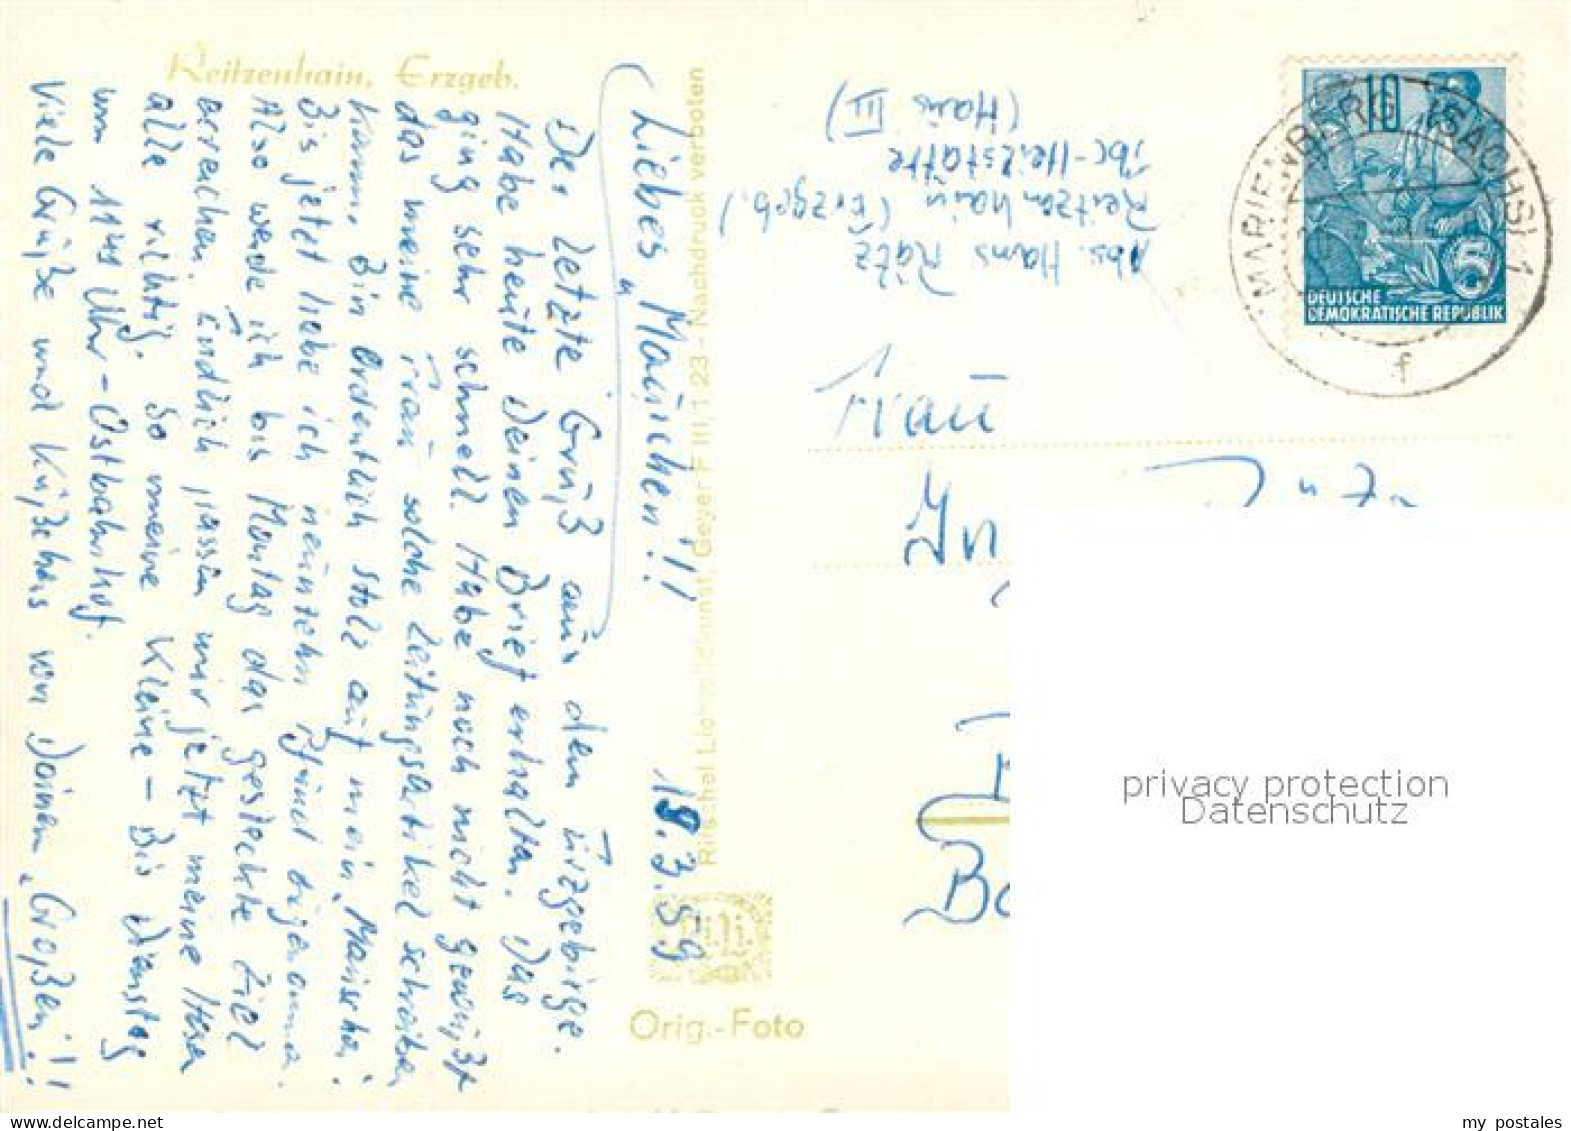 Reitzenhain, Erzgeb.
Liebes „Mäuschen"!!
19.3.59
Der letzte Gruß aus dem Erzgebirge.
Habe heute Deinen Brief erhalten. Das
ging sehr schnell. Habe noch nicht gewußt
das meine Frau solche Zeitungsartikel schreiben
kann. Bin ordentlich stolz auf mein „Mäuschen".
Bis jetzt habe ich neunzehn Pfund
Also werde ich bis Montag das gesteckte Ziel
erreichen. Endlich passen mir jetzt meine Hosen
alle richtig. So meine Kleine – Bis Dienstag
um 1144 Uhr – Ostbahnhof.
Viele Grüße und Küßchens von Deinem „Großen"!!
Rilschel Lichtbildkunst, Geyer F III, T 23 - Nachdruck verboten
Orig.-Foto
Abs. Hans Rätz
Reitzenhain (Erzgeb.)
Tbc-Heilstätte
(Haus III)
10
5
DEUTSCHE
DEMOKRATISCHE REPUBLIK
MARIENBERG (SACHS) 1
f
Frau
privacy protection
Datenschutz
my postales